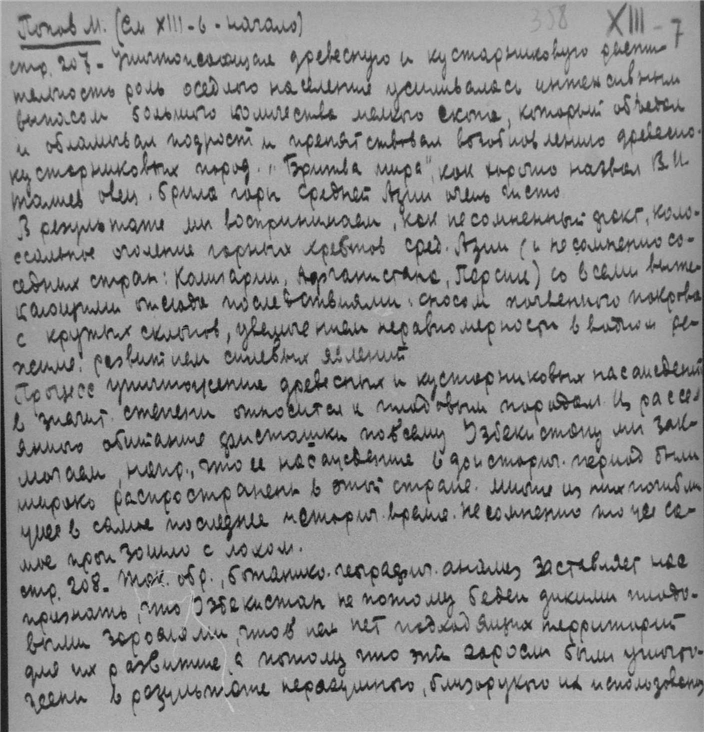 Попов М. (см XIII-6-начало) 358 XIII-7
стр. 207- Уничтожающая древесную и кустарниковую расти-
тельность роль оседлого населения усиливалась интенсивным
выпасом большого количества мелкого скота, который объедал
и обламывал подрост и препятствовал возобновлению древесно-
кустарниковых пород. "Бритва мира", как хорошо назвал В.И.
Талиев овец, брила горы Средней Азии очень чисто.
В результате мы воспринимаем, как несомненный факт, коло-
ссальное оголение горных хребтов сред. Азии (и несомненно со-
седних стран: Кашгарии, Афганистана, Персии) со всеми выте-
кающими отсюда последствиями: сносом почвенного покрова
с крутых склонов, увеличением неравномерности в водном ре-
жиме: развитием селевых явлений
Процесс уничтожение древесных и кустарниковых насаждений
в значит. степени относится к плодовым породам. Из рассе-
янного обитание фисташки по всему Узбекистану мы зак-
лючаем, напр., что ее насаждение в доисторич. период были
широко распространены в этой стране. Многие из них погибли
уже в самое последнее историч. время. Несомненно то же са-
мое произошло с лохом.
стр. 208. Так. обр., ботанико-географич. анализ заставляет нас
признать, что Узбекистан не потому беден дикими плодо-
выми зарослями, что в нем нет подходящих территорий
для их развитие, а потому что эти заросли были уничто-
жены в результате неразумного, близорукого их использован